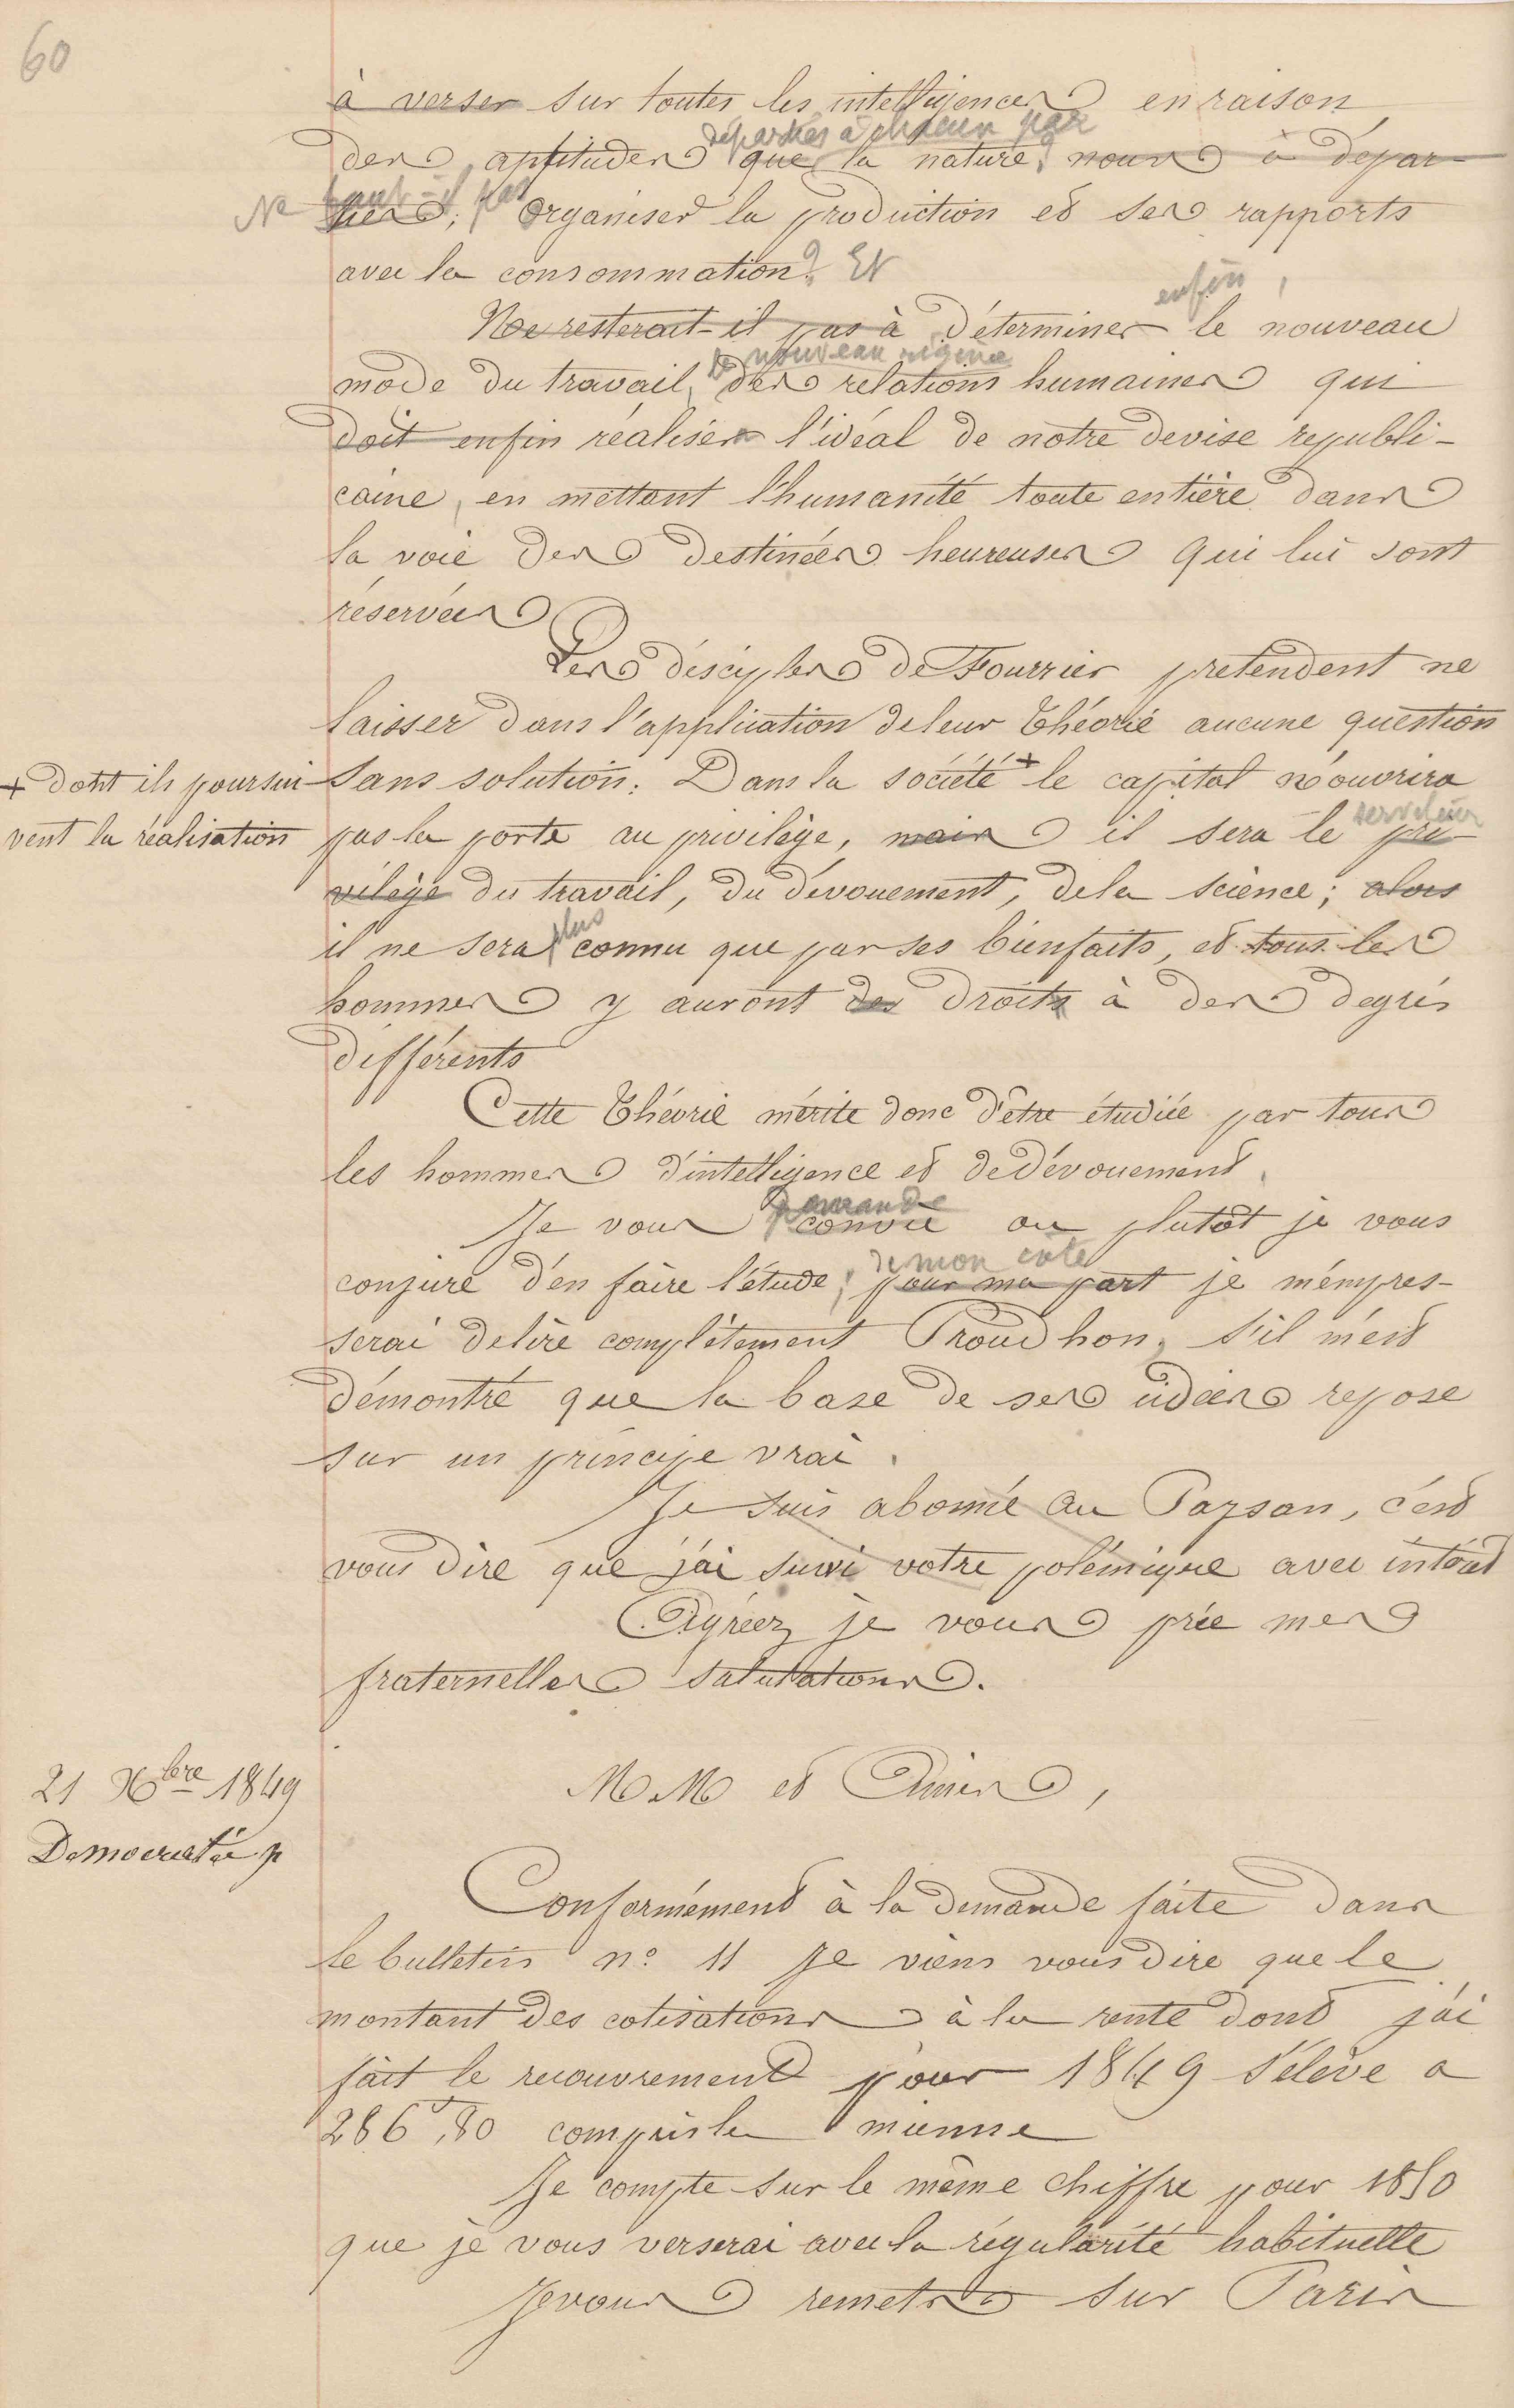 60
à verser sur toutes les intelligences en raison
départies à chacun par
des aptitudes que la nature, nous a dépar-
Ne faut-il pas
ties; organiser la production et ses rapports
avec la consommation? Et
enfin,
Ne resterait-il pas à déterminer le nouveau
le nouveau régime
mode du travail, des relations humaines qui
doit enfin réaliser l'idéal de notre devise republi-
caine, en mettant l'humanité toute entière dans
la voie des destinées heureuses qui lui sont
réservées
Les disciples de Fourrier pretendent ne
laisser dans l'application de leur théorie aucune question
+ dont ils poursui
sans solution. Dans la société + le capital n'ouvrira
vent la réalisation
serviteur
pas la porte au privilège, mais il sera le pri-
vilège du travail, du dévouement, de la science; alors
plus
il ne sera connu que par ses bienfaits, et tous les
hommes y auront des droits à des degrés
différents
Cette théorie mérite donc d'être étudiée par tous
les hommes d'intelligence et de dévouement.
demande
Je vous convie ou plutôt je vous
de mon coté
conjure d'en faire l'étude, pour ma part je m'empres-
serai de lire complètement Proudhon, s'il m'est
démontré que la base de ses idées repose
sur un principe vrai.
Je suis abonné au Paysan, c'est
vous dire que j'ai suivi votre polémique avec intérêt
Agréez je vous prie mes
fraternelles salutations.
21 Xbre 1849
Democratie p
MM et Amis,
Conformément à la demande faite dans
le bulletin n° 11 je viens vous dire que le
montant des cotisations à la rente dont j'ai
fait le recouvrement pour 1849 s'élève a
286f,80 compris la mienne
Je compte sur le même chiffre pour 1850
que je vous verserai avec la régularité habituelle
Je vous remets sur Paris